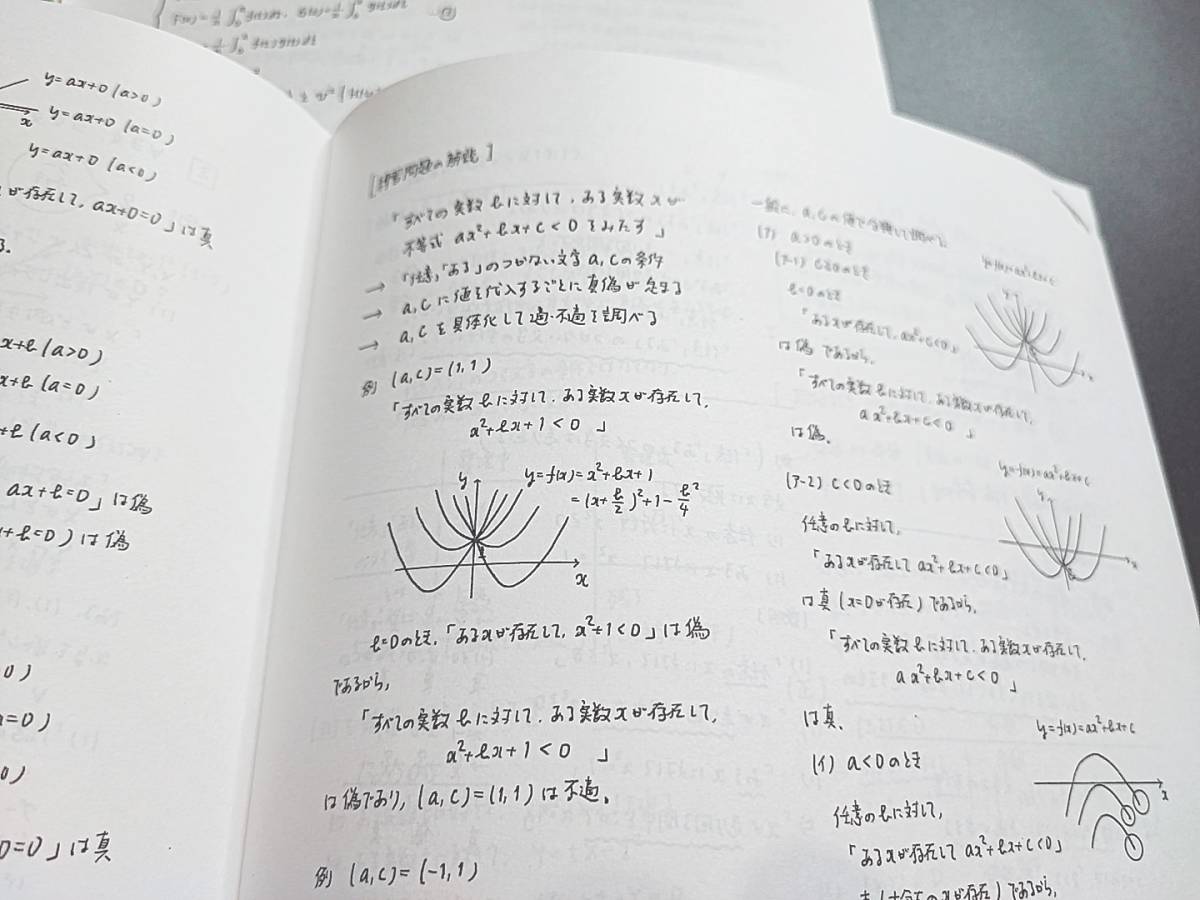 y=ax+0 (a>0)
x
y=ax+0 (a=0)
y=ax+0 (a<0)
が存在して, ax+0=0」は真
x+b (a>0)
x+b (a=0)
+b (a<0)
ax+b=0」は偽
+b=0」は偽
0)
a=0)
0)
0=0」は真
[練習問題の解説]
「すべての実数bに対して, ある実数xが
不等式 ax²+bx+c<0をみたす」
→ 「任意」「ある」のつかない文字a, cの条件
→ a, cに値を代入するごとに真偽が定まる
→ a, cを具体化して適・不適を調べる
例 (a,c)=(1,1)
「すべての実数bに対して, ある実数xが存在して,
x²+bx+1<0 」
y
y=f(x)=x²+bx+1
=(x+b/2)²+1-b²/4
1
x
b=0のとき,「あるxが存在して, x²+1<0」は偽
であるから,
「すべての実数bに対して, ある実数xが存在して,
x²+bx+1<0 」
は偽であり, (a,c)=(1,1)は不適。
例 (a,c)=(-1,1)
一般に, a, cの値で分類して調べる。
(ア) a>0のとき
(ア-1) c≧0のとき
y=f(x)=ax²+bx+c
b=0のとき
「あるxが存在して, ax²+c<0」
は偽であるから,
「すべての実数bに対して, ある実数xが存在して,
ax²+bx+c<0 」
は偽。
(ア-2) c<0のとき
y=f(x)=ax²+bx+c
任意のbに対して,
「あるxが存在して ax²+bx+c<0」
は真 (x=0が存在) であるから,
「すべての実数bに対して, ある実数xが存在して,
ax²+bx+c<0 」
は真.
y=f(x)=ax²+bx+c
(イ) a<0のとき
x
任意のbに対して,
「あるxが存在して ax²+bx+c<0」